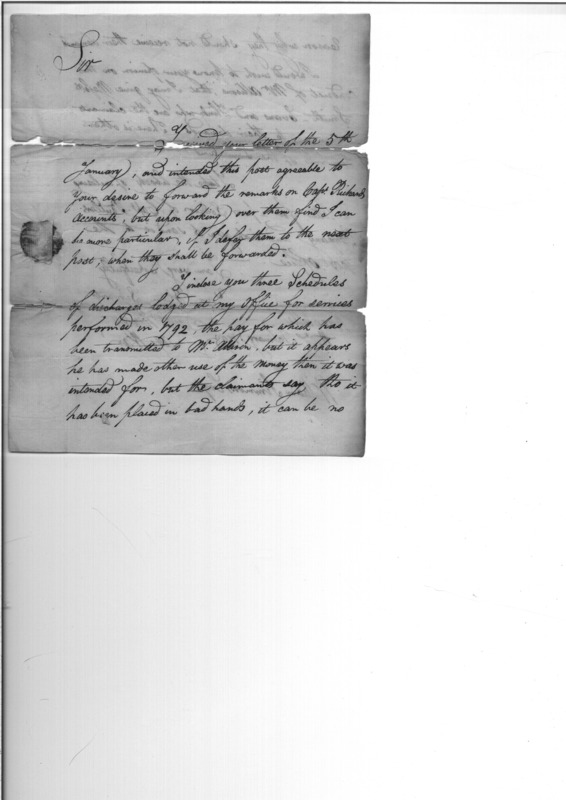 Sir
I received your letter of the 5th
January, and intended this post agreeable to
your desire to forward the remarks on Capt. Rickard
accounts; but upon looking over them find I can
be more particular, if I defay them to the next
post, when they shall be forwarded.
I inclose you three Schedules
of discharges lodg'd at my office for services
performed in 1792, the pay for which has
been transmitted to Mr. Allison, but it appears
he has made other use of the money then it was
intended for, but the claimants say, tho it
has been placed in bad hands, it can be no